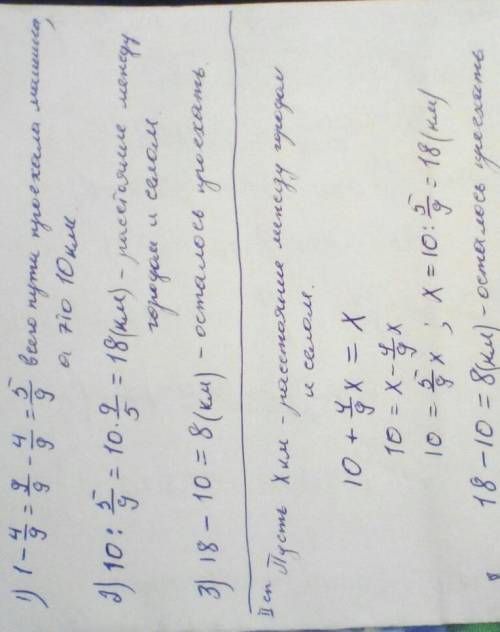 1) 1 - 4/9 = 9/9 - 4/9 = 5/9 всего пути проехала машина,
а это 10 км
2) 10 : 5/9 = 10 · 9/5 = 18 (км) - расстояние между
городом и селом.
3) 18 - 10 = 8 (км) - осталось проехать.
II сп. Пусть X км - расстояние между городом
и селом.
10 + 4/9 x = x
10 = x - 4/9 x
10 = 5/9 x ; x = 10 : 5/9 = 18 (км)
18 - 10 = 8 (км) - осталось проехать